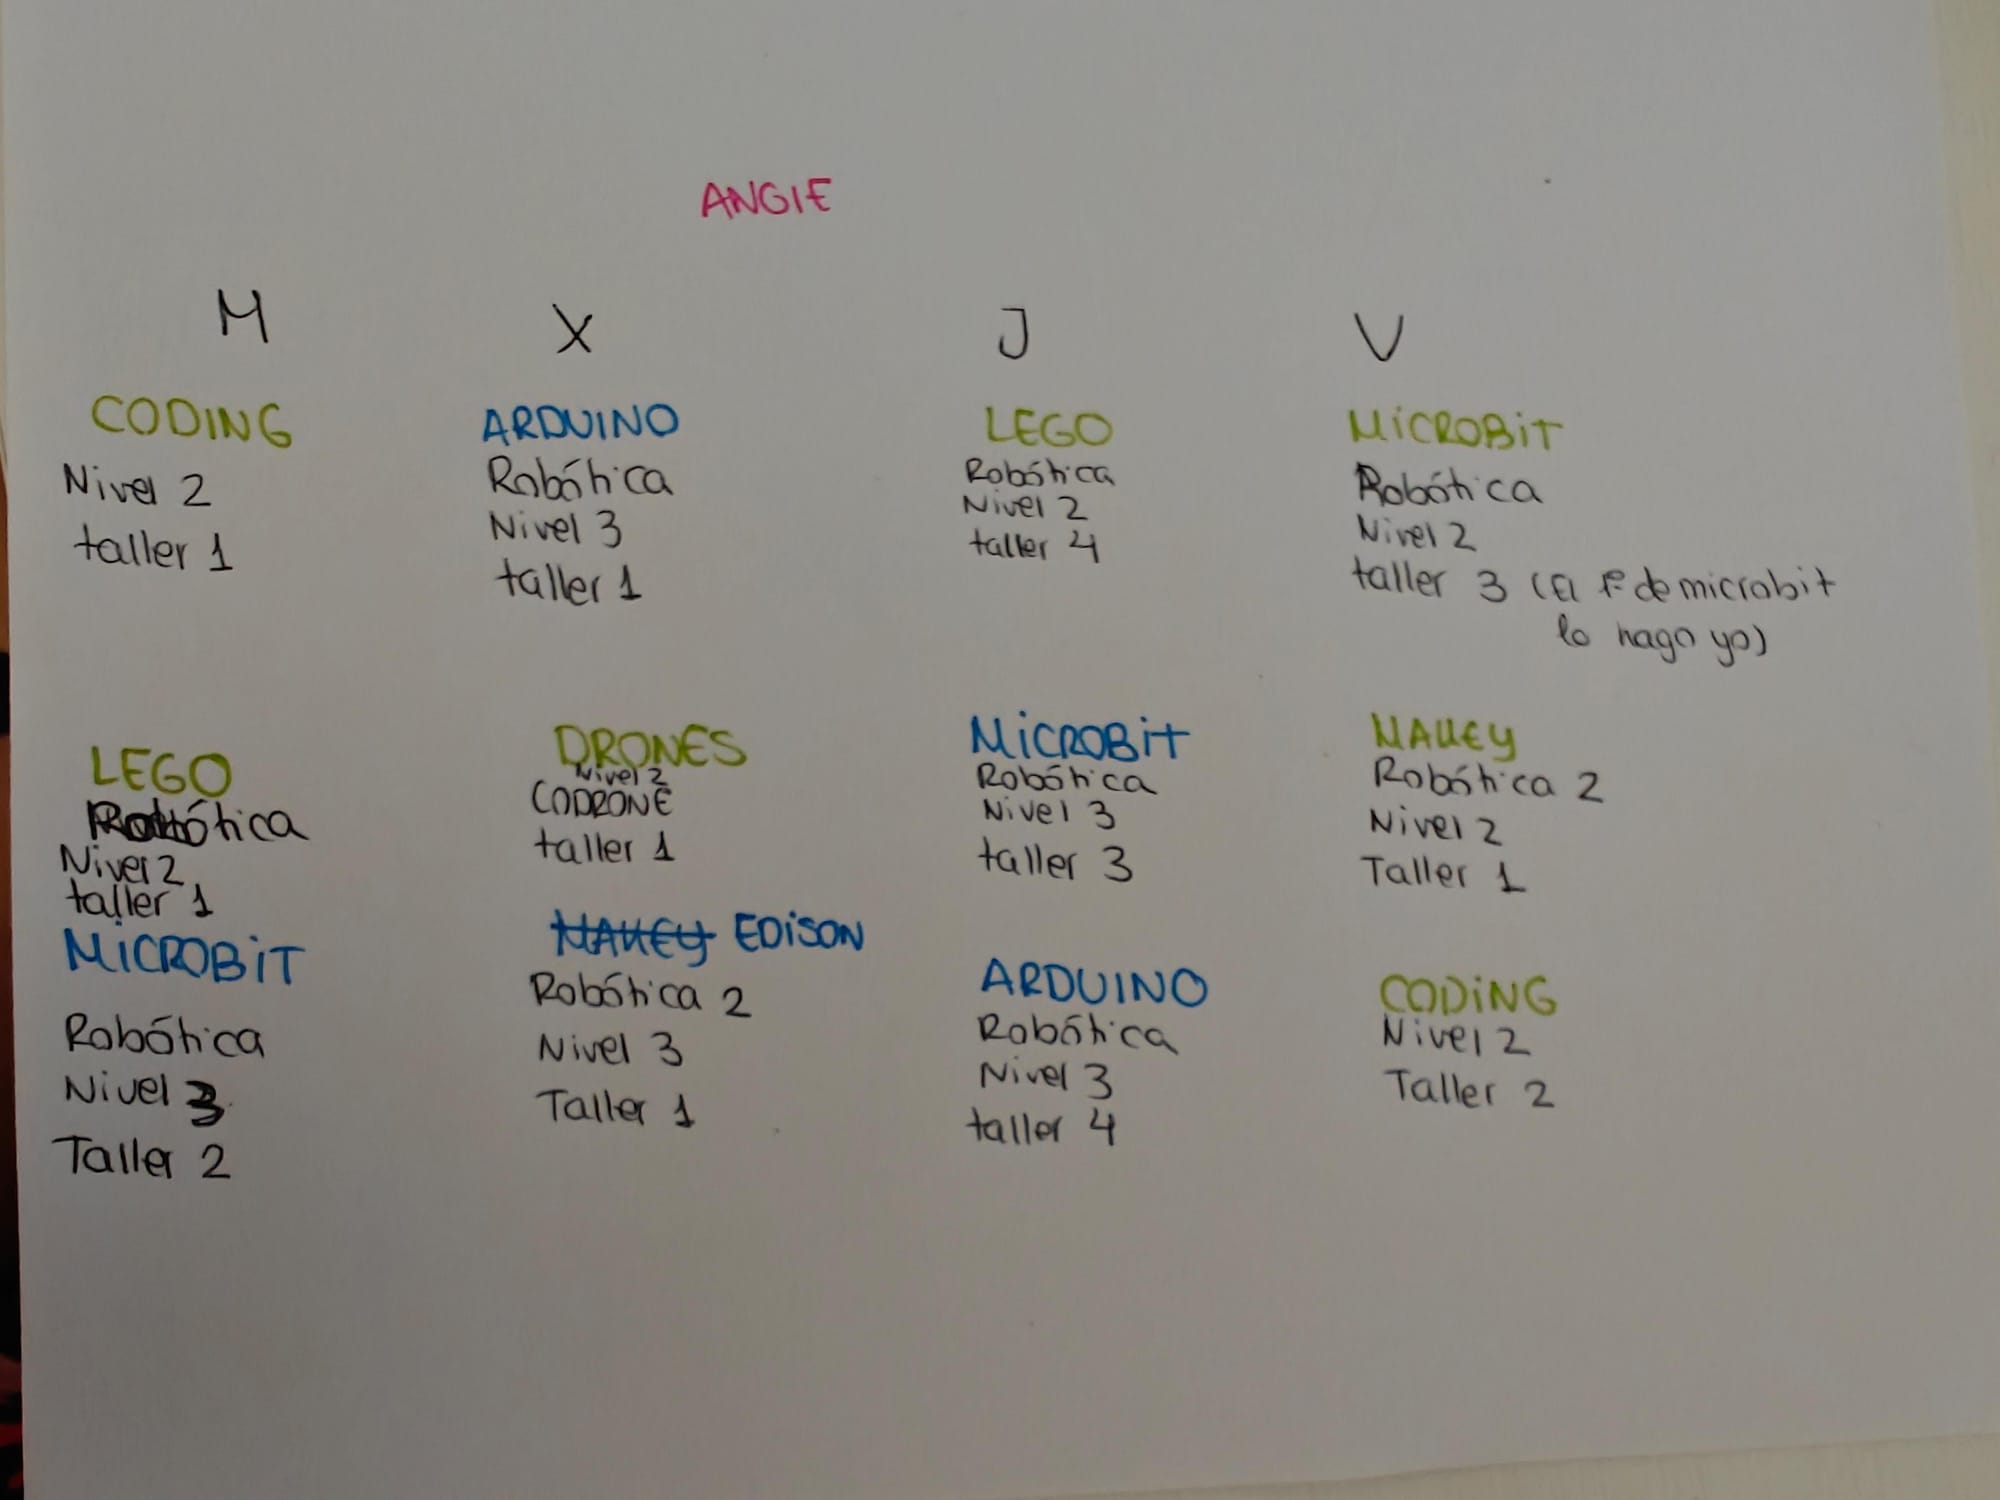 ANGIE
M
CODING
Nivel 2
taller 1
LEGO
Robótica
Nivel 2
taller 1
MiCROBiT
Robótica
Nivel 3
Taller 2
X
ARDUINO
Robótica
Nivel 3
taller 1
DRONES
Nivel 2
CODRONE
taller 1
MAKEY EDiSON
Robótica 2
Nivel 3
Taller 1
J
LEGO
Robótica
Nivel 2
taller 4
MiCROBiT
Robótica
Nivel 3
taller 3
ARDUINO
Robótica
Nivel 3
taller 4
V
MiCROBiT
Robótica
Nivel 2
taller 3 (El de microbit
lo hago yo)
MAKEY
Robótica 2
Nivel 2
Taller 1
CODiNG
Nivel 2
Taller 2